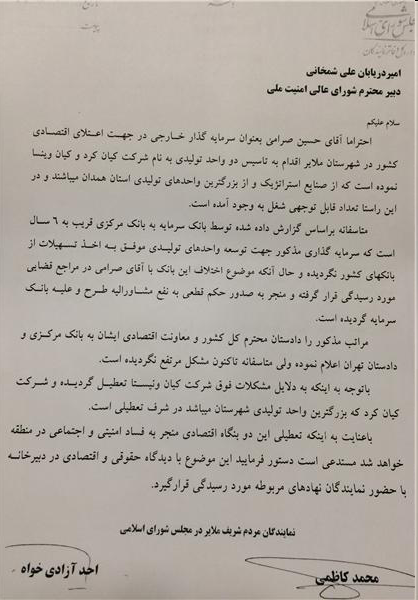 مجلس شورای اسلامی
امیردریابان علی شمخانی
دبیر محترم شورای عالی امنیت ملی
سلام علیکم
احتراما آقای حسین صرامی بعنوان سرمایه گذار خارجی در جهت اعتلای اقتصادی
کشور در شهرستان ملایر اقدام به تاسیس دو واحد تولیدی به نام شرکت کیان کرد و کیان وینسا
نموده است که از صنایع استراتژیک و از بزرگترین واحدهای تولیدی استان همدان میباشند و در
این راستا تعداد قابل توجهی شغل به وجود آمده است.
متاسفانه براساس گزارش داده شده توسط بانک سرمایه به بانک مرکزی قریب به ٦ سال
است که سرمایه گذاری مذکور جهت توسعه واحدهای تولیدی موفق به اخذ تسهیلات از
بانکهای کشور نگردیده و حال آنکه موضوع اختلاف این بانک با آقای صرامی در مراجع قضایی
مورد رسیدگی قرار گرفته و منجر به صدور حکم قطعی به نفع مشارالیه طرح و علیه بانک
سرمایه گردیده است.
مراتب مذکور را دادستان محترم کل کشور و معاونت اقتصادی ایشان به بانک مرکزی و
دادستان تهران اعلام نموده ولی متاسفانه تاکنون مشکل مرتفع نگردیده است.
باتوجه به اینکه به دلایل مشکلات فوق شرکت کیان ونیستا تعطیل گردیده و شرکت
کیان کرد که بزرگترین واحد تولیدی شهرستان میباشد در شرف تعطیلی است.
باعنایت به اینکه تعطیلی این دو بنگاه اقتصادی منجر به فساد امنیتی و اجتماعی در منطقه
خواهد شد مستدعی است دستور فرمایید این موضوع با دیدگاه حقوقی و اقتصادی در دبیرخانه
با حضور نمایندگان نهادهای مربوطه مورد رسیدگی قرارگیرد.
نمایندگان مردم شریف ملایر در مجلس شورای اسلامی
محمد کاظمی
احد آزادی خواه